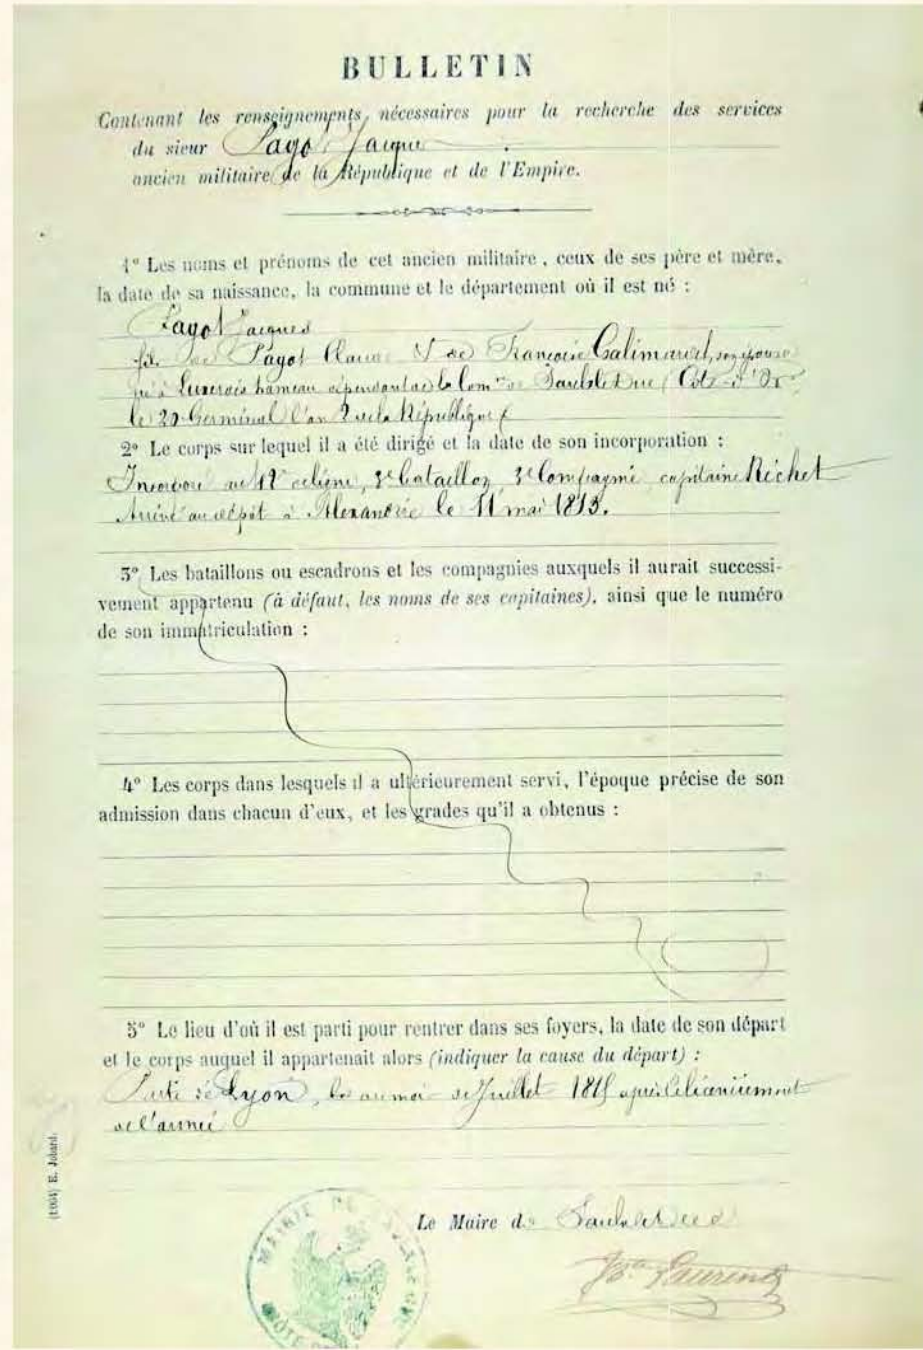 BULLETIN
Contenant les renseignements nécessaires pour la recherche des services
du sieur Pagot Jacques
ancien militaire de la République et de l'Empire.
1° Les noms et prénoms de cet ancien militaire, ceux de ses père et mère,
la date de sa naissance, la commune et le département où il est né :
Pagot Jacques
fils de Pagot Claude & de Françoise Galimard, son épouse
né à Luxerois hameau dépendant de la Com^ne de Saulx le Duc (Côte-d'Or)
le 20 Germinal l'an 2 de la République
2° Le corps sur lequel il a été dirigé et la date de son incorporation :
Incorporé au de ligne, 3e bataillon, 3e Compagnie, capitaine Richet
Arrivé au dépôt à Alexandrie le 11 mai 1813.
3° Les bataillons ou escadrons et les compagnies auxquels il aurait successi-
vement appartenu (à défaut, les noms de ses capitaines), ainsi que le numéro
de son immatriculation :
4° Les corps dans lesquels il a ultérieurement servi, l'époque précise de son
admission dans chacun d'eux, et les grades qu'il a obtenus :
5° Le lieu d'où il est parti pour rentrer dans ses foyers, la date de son départ
et le corps auquel il appartenait alors (indiquer la cause du départ) :
Parti de Lyon, au mois de Juillet 1815 après le licenciement
de l'armée
(1064) E. Jobard.
Le Maire de Saulx le Duc
MAIRIE DE